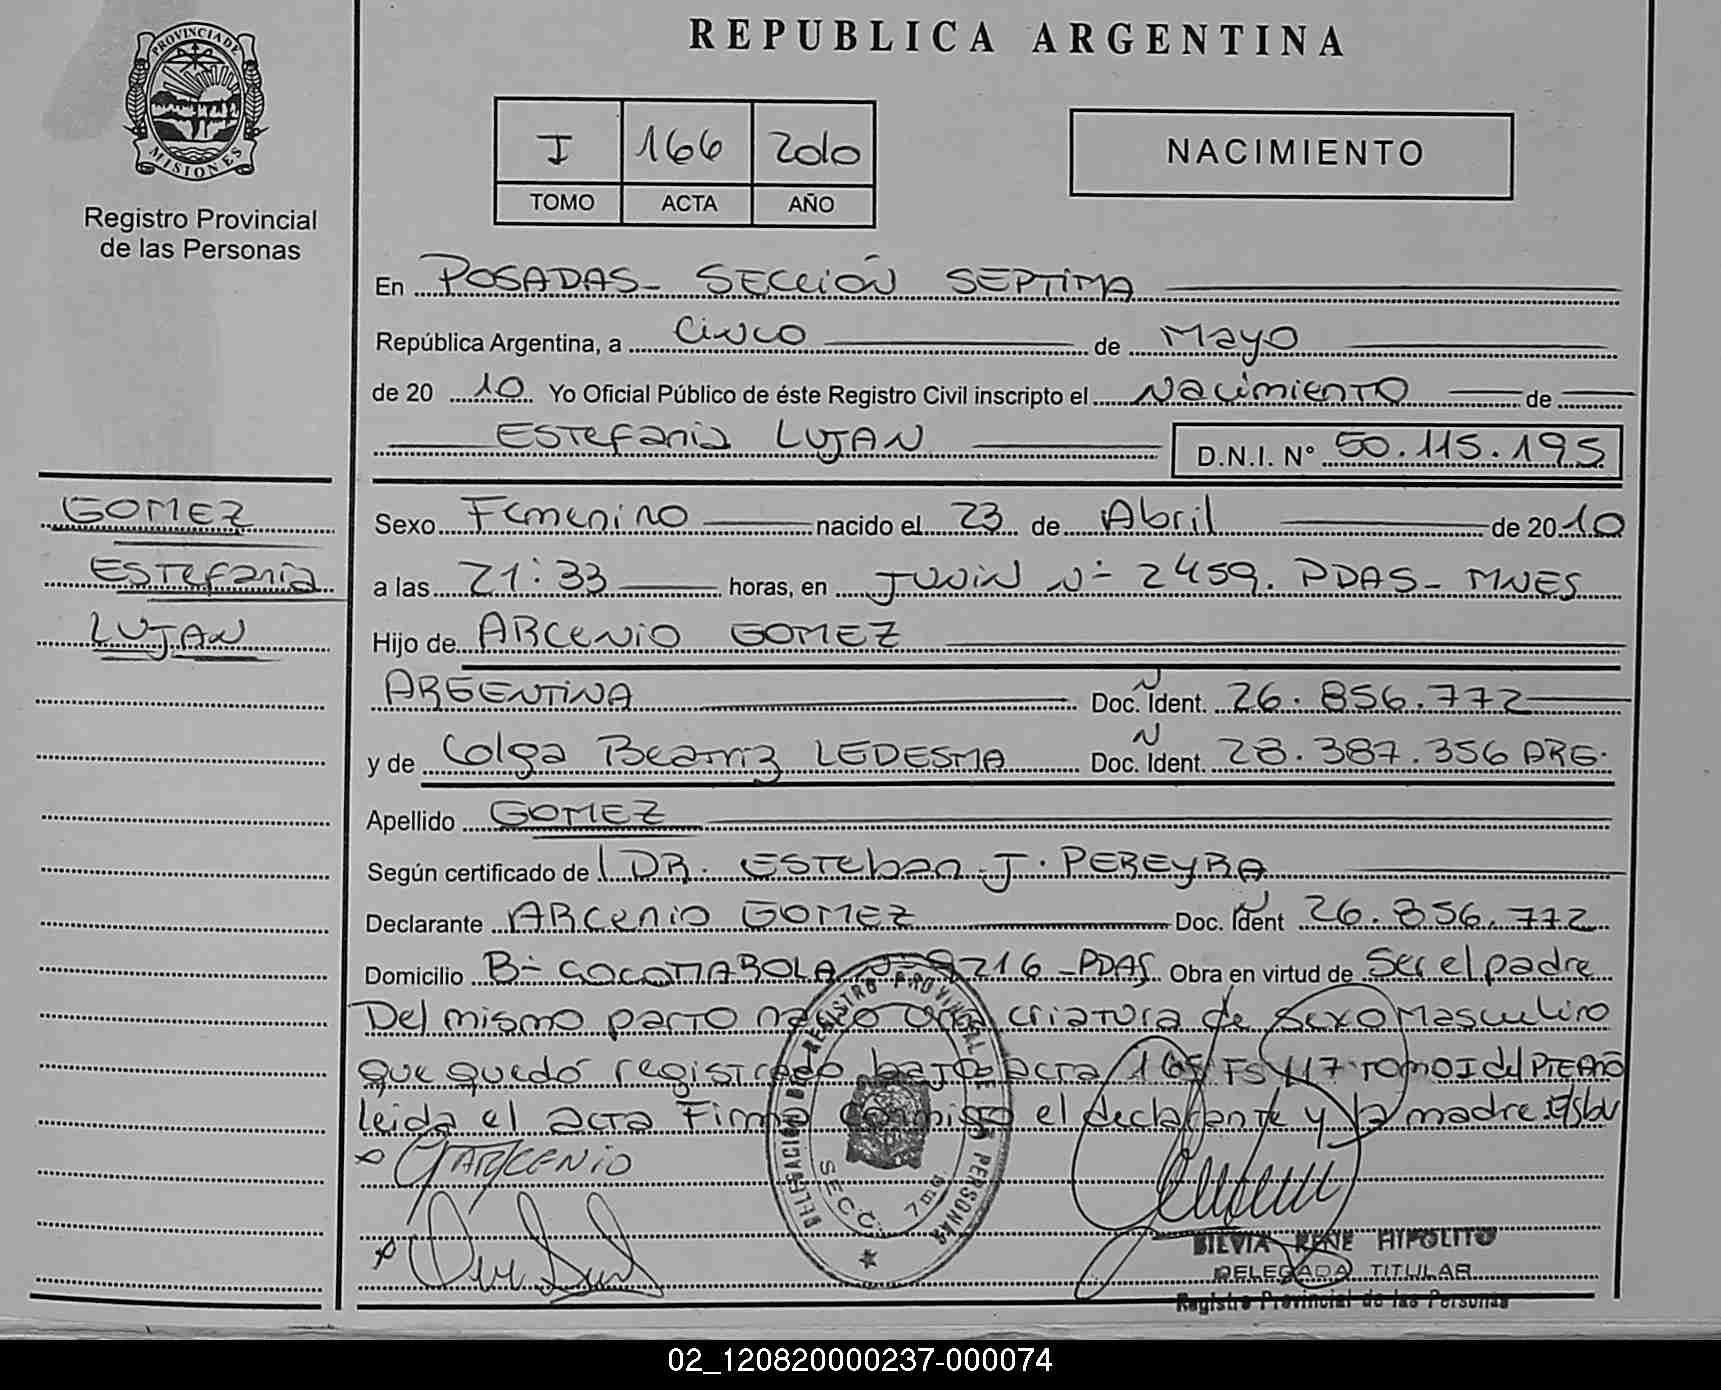 PROVINCIA DE
MISIONES
Registro Provincial
de las Personas
REPUBLICA ARGENTINA
I 166 2010
TOMO ACTA AÑO
NACIMIENTO
En POSADAS- SECCIÓN SEPTIMA
República Argentina, a Cinco de Mayo
de 20 10 Yo Oficial Público de éste Registro Civil inscripto el Nacimiento de
Estefania LUJAN D.N.I. N° 50.115.195
GOMEZ
Estefania
LUJAN
Sexo Femenino nacido el 23 de Abril de 20 10
a las 21:33 horas, en JUNIN N- 2459. PDAS- MNES
Hijo de ARCENIO GOMEZ
ARGENTINA Doc. Ident. 26.856.772
N
y de Olga Beatriz LEDESMA Doc. Ident. 28.387.356 ARG.
N
Apellido GOMEZ
Según certificado de DR. Esteban J. PEREYRA
Declarante ARCENIO GOMEZ Doc. Ident 26.856.772
N
Domicilio B- COCOMAROLA N- 9216 -PDAS Obra en virtud de Ser el padre
Del mismo parto nacio una criatura de sexo Masculino
que quedó registrado bajo acta 165 FS 117 TOMO I del PTE AÑO
leida el acta Firma conmigo el declarante y la madre.
G ARCENIO
DELEGACION DEL REGISTRO PROVINCIAL DE LAS PERSONAS
SECC. 7ma.
SILVIA RENE HIPOLITO
DELEGADA TITULAR
Registro Provincial de las Personas
02_120820000237-000074